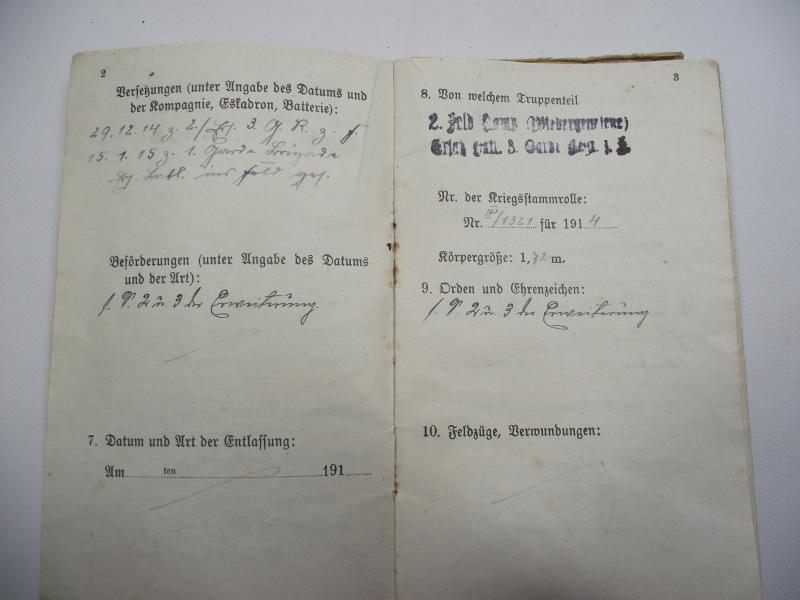 2
Versetzungen (unter Angabe des Datums und
der Kompagnie, Eskadron, Batterie):
29.12.14 z. 2./Ers. 3. G. R. z. F.
15.1.15 z. 1. Garde Brigade
Ers. Batl. ins Feld ges.
Beförderungen (unter Angabe des Datums
und der Art):
s. S. 2 u. 3 der Erweiterung.
7. Datum und Art der Entlassung:
Am ten 191
3
8. Von welchem Truppenteil
2. Feld Komp.
3. Garde Reg. z. F.
Nr. der Kriegsstammrolle:
Nr. III/1321 für 1914
Körpergröße: 1,72 m.
9. Orden und Ehrenzeichen:
s. S. 2 u. 3 der Erweiterung
10. Feldzüge, Verwundungen: